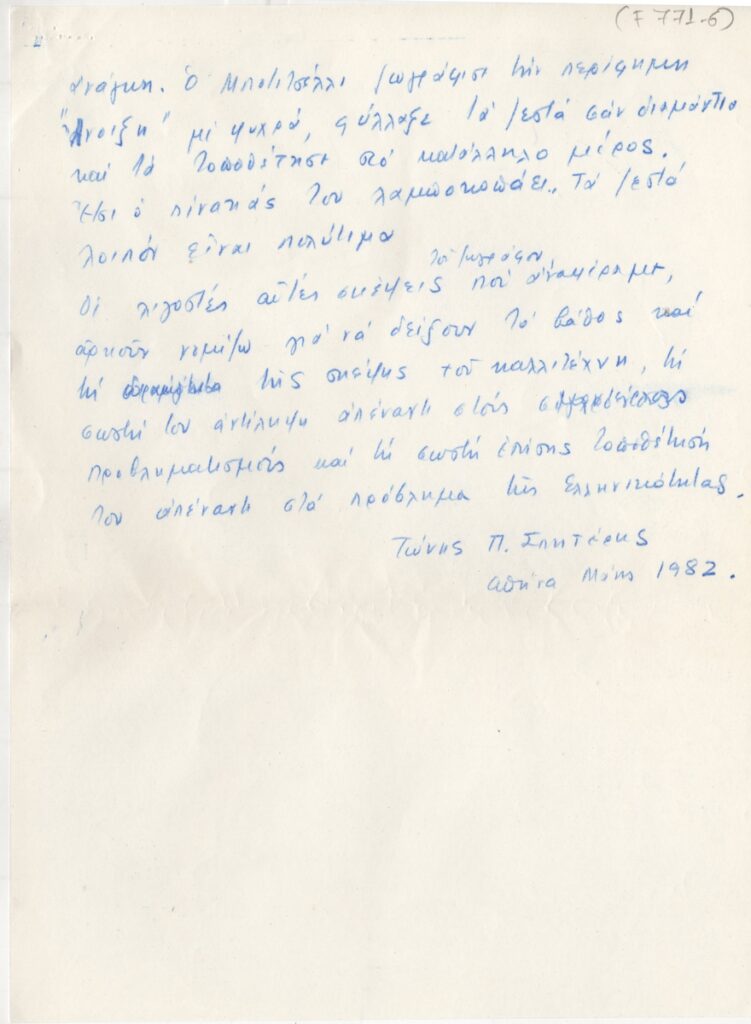 (F 771-6)
ἀνάγκη. Ὁ Μποτιτσέλλι ζωγράφισε τήν περίφημη
"Ἄνοιξη" μέ ψυχρά, φύλλαξε τά ζεστά σάν διαμάντια
καί τά τοποθέτησε στό κατάλληλο μέρος.
Ἔτσι ὁ πίνακάς του λαμποκοπάει. Τά ζεστά
λοιπόν εἶναι πολύτιμα
τοῦ ζωγράφου
Οἱ λιγοστές αὐτές σκέψεις πού ἀναφέραμε,
ἀρκοῦν νομίζω γιά νά δείξουν τό βάθος καί
τή τῆς σκέψης τοῦ καλλιτέχνη, τή
σωστή του ἀντίληψη ἀπέναντι στούς
προβληματισμούς καί τή σωστή ἐπίσης τοποθέτησή
του ἀπέναντι στό πρόβλημα τῆς ἑλληνικότητας.
Τώνης Π. Σπητέρης
Ἀθήνα Μάης 1982.